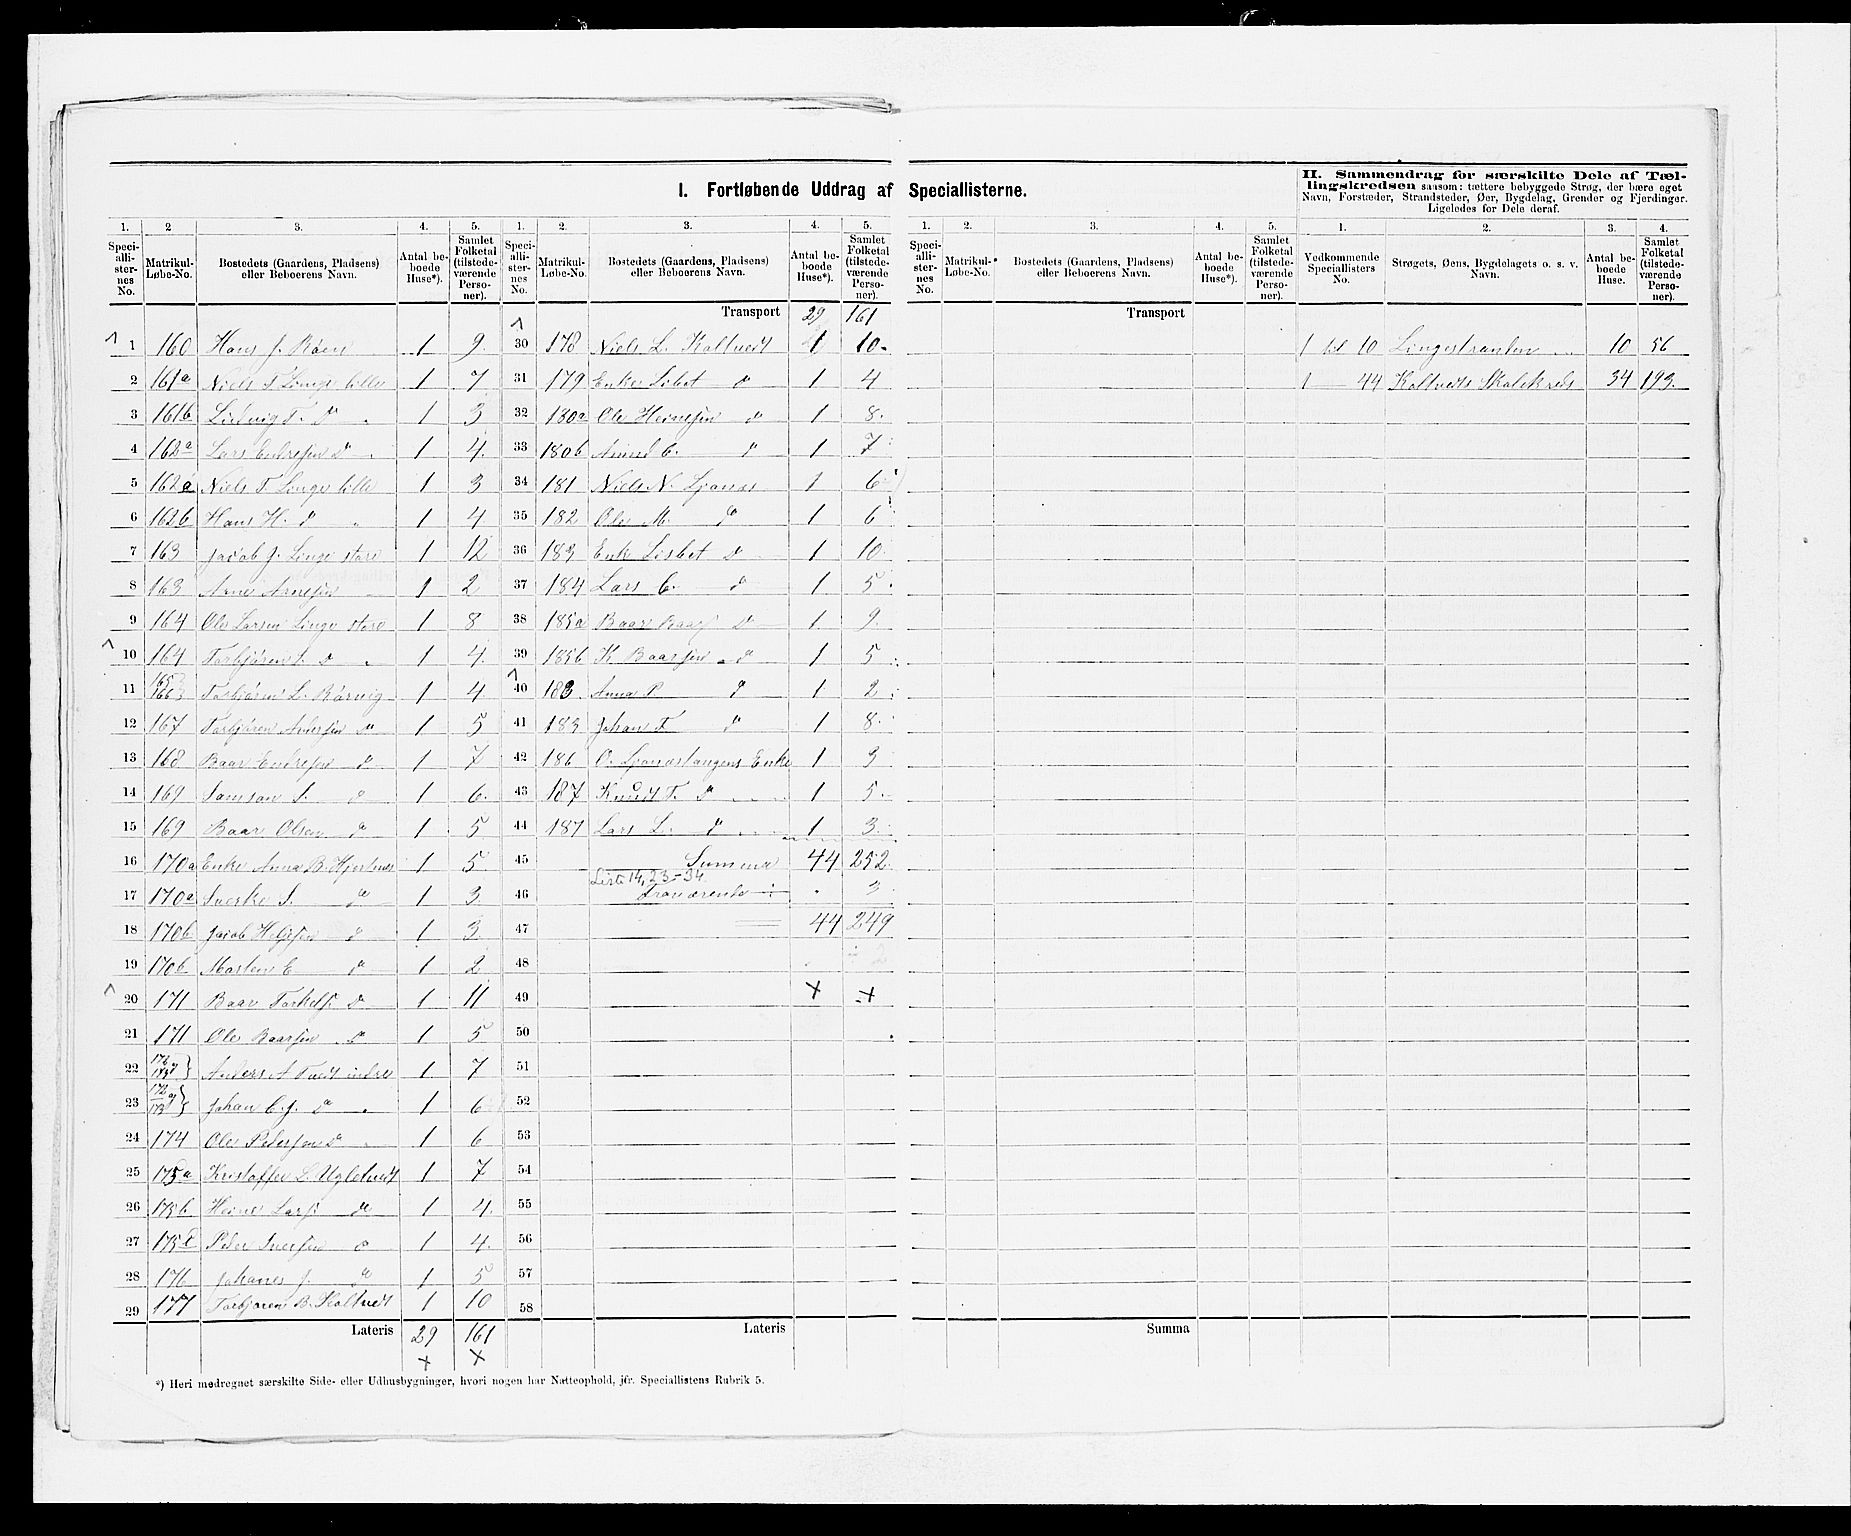 I. Fortløbende Uddrag af Speciallisterne.
II. Sammendrag for særskilte Dele af Tæl-
lingskredsen saasom: tættere bebyggede Strøg, der bære eget
Navn, Forstæder, Strandsteder, Øer, Bygdelag, Grender og Fjerdinger.
Ligeledes for Dele deraf.
1. 2 3. 4. 5. 1. 2. 3. 4. 5. 1. 2. 3. 4. 5. 1. 2. 3. 4.
Speciallisternes No. Matrikul-Løbe-No. Bostedets (Gaardens, Pladsens) eller Beboerens Navn. Antal beboede Huse*). Samlet Folketal (tilstedeværende Personer).
Speciallisternes No. Matrikul-Løbe-No. Bostedets (Gaardens, Pladsens) eller Beboerens Navn. Antal beboede Huse*). Samlet Folketal (tilstedeværende Personer).
Speciallisternes No. Matrikul-Løbe-No. Bostedets (Gaardens, Pladsens) eller Beboerens Navn. Antal beboede Huse*). Samlet Folketal (tilstedeværende Personer).
Vedkommende Speciallisters No. Strøgets, Øens, Bygdelagets o. s. v. Navn. Antal beboede Huse. Samlet Folketal (tilstedeværende Personer).
1 160 Hans J. Røen 1 9
2 161a Niels T. Linge lille 1 7
3 161b Ludvig T. do 1 3
4 162a Lars Endresen do 1 4.
5 162a Niels T. Linge lille 1 3
6 162b Hans H. do 1 4
7 163 Jacob J. Linge store 1 12
8 163 Arne Arnesen 1 2
9 164 Ole Larsen Linge store 1 8
10 164 Torbjøren S. do 1 4.
11 165 166 Torbjøren L. Rørvig 1 4
12 167 Torbjøren Andersen do 1 5
13 168 Baar Endresen do 1 7
14 169 Samson S. do 1 6.
15 169 Baar Olsen do 1 5
16 170a Enke Anna B. Hjertnes 1 5
17 170a Sverke S. do 1 3
18 170b Jacob Helgesen do 1 3
19 170b Marten E do 1 2
20 171 Baar Torkels. do 1 11
21 171 Ole Baarsen do 1 5
22 Anders A Tvedt indre 1 7
23 Johan C. J. do 1 6
24 174 Ole Pedersen do 1 6
25 175a Kristoffer L. Ugletvedt 1 7
26 175b Heine Lars. do 1 4.
27 175c Peder Iversen do 1 4.
28 176 Johanes J. do 1 5
29 177 Torbjøren B. Kaltvedt 1 10
Lateris 29 161
× ×
Transport 29 161
30 178 Niels L. Kaltvedt 1 10.
31 179 Enke Lisbet do 1 4
32 180a Ole Heinesen do 1 8.
33 180b Amund C. do 1 7
34 181 Niels N. Ljonæs 1 6
35 182 Ole M. do 1 6
36 183 Enke Lisbet do 1 10
37 184 Lars C. do 1 5
38 185a Baar Baars. do 1 9
39 185b K. Baarsen do 1 5
40 183 Anna P. do 1 2
41 183 Johan T. do 1 8.
42 186 O. Ljonæstangens Enke 1 3
43 187 Knudt T. do 1 5
44 187 Lars L. do 1 3
45 Summa 44 252
46 Liste 14, 23-34 Fraværende ÷ 3
47 44 249
48
49 × ×
50
51
52
53
54
55
56
57
58
Lateris
Transport
Summa
1 til 10 Lingestranden 10 56
1 — 44 Kaltvedts Skolekreds 34 193.
*) Heri medregnet særskilte Side- eller Udhusbygninger, hvori nogen har Natteophold, jfr. Speciallistens Rubrik 5.